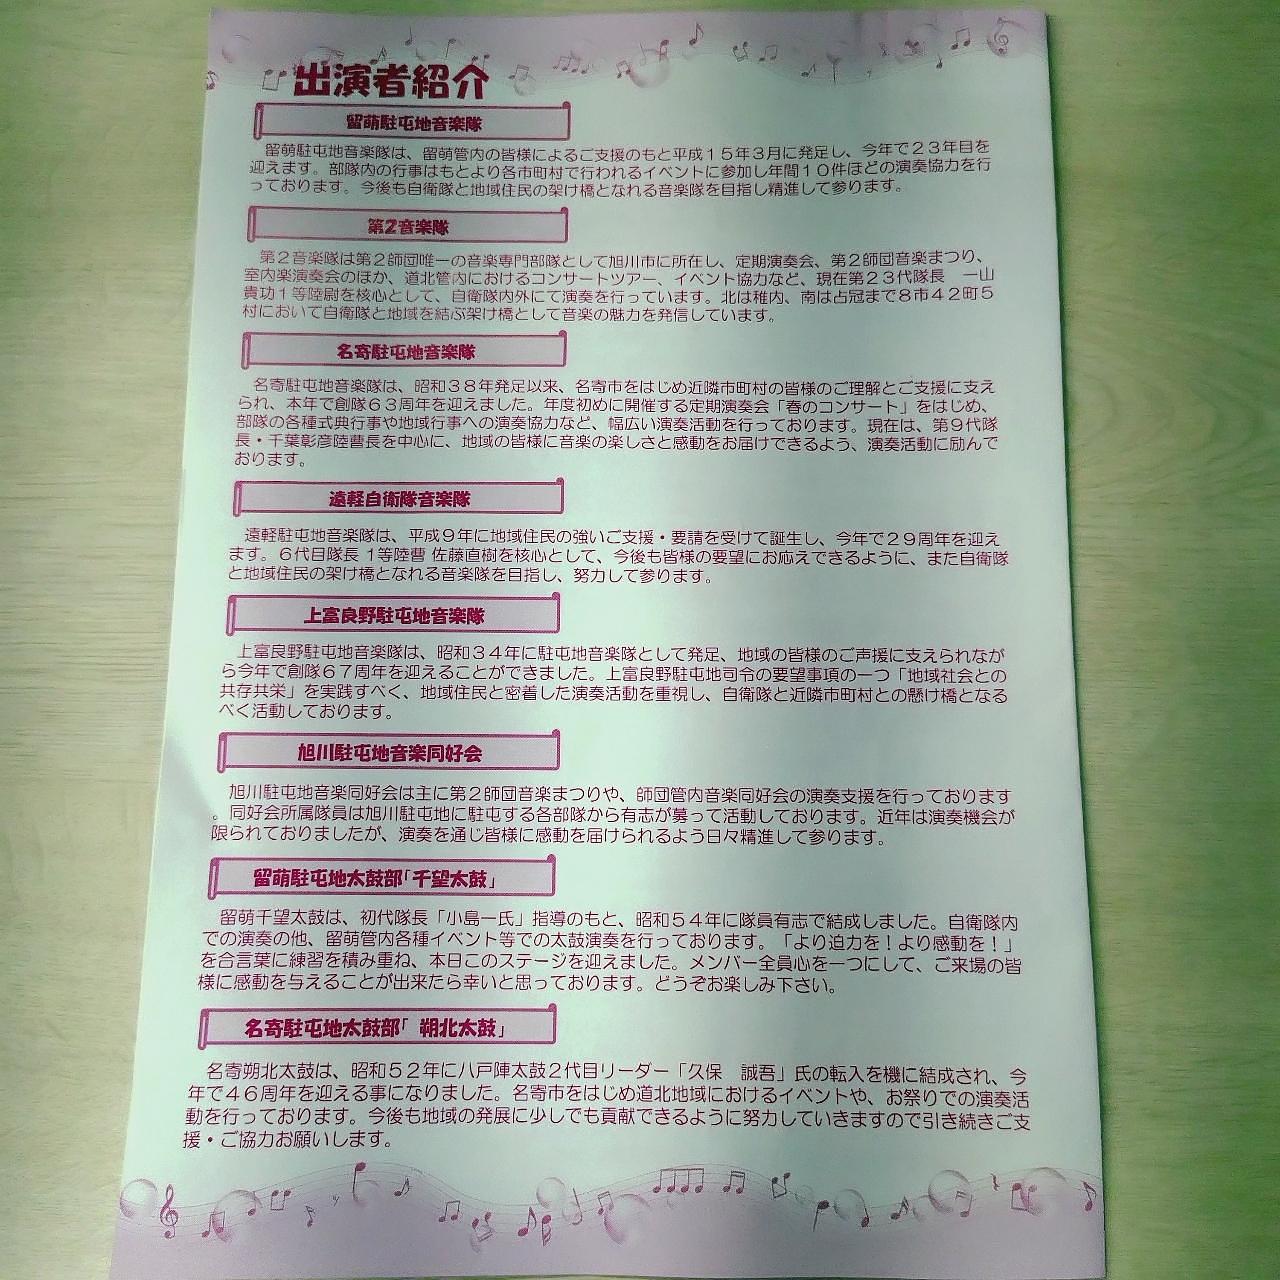 出演者紹介
留萌駐屯地音楽隊
留萌駐屯地音楽隊は、留萌管内の皆様によるご支援のもと平成１５年３月に発足し、今年で２３年目を
迎えます。部隊内の行事はもとより各市町村で行われるイベントに参加し年間１０件ほどの演奏協力を行
っております。今後も自衛隊と地域住民の架け橋となれる音楽隊を目指し精進して参ります。
第2音楽隊
第２音楽隊は第２師団唯一の音楽専門部隊として旭川市に所在し、定期演奏会、第２師団音楽まつり、
室内楽演奏会のほか、道北管内におけるコンサートツアー、イベント協力など、現在第２３代隊長　一山
貴功１等陸尉を核心として、自衛隊内外にて演奏を行っています。北は稚内、南は占冠まで８市４２町５
村において自衛隊と地域を結ぶ架け橋として音楽の魅力を発信しています。
名寄駐屯地音楽隊
名寄駐屯地音楽隊は、昭和３８年発足以来、名寄市をはじめ近隣市町村の皆様のご理解とご支援に支え
られ、本年で創隊６３周年を迎えました。年度初めに開催する定期演奏会「春のコンサート」をはじめ、
部隊の各種式典行事や地域行事への演奏協力など、幅広い演奏活動を行っております。現在は、第９代隊
長・千葉彰彦陸曹長を中心に、地域の皆様に音楽の楽しさと感動をお届けできるよう、演奏活動に励んで
おります。
遠軽自衛隊音楽隊
遠軽駐屯地音楽隊は、平成９年に地域住民の強いご支援・要請を受けて誕生し、今年で２９周年を迎え
ます。６代目隊長 １等陸曹 佐藤直樹を核心として、今後も皆様の要望にお応えできるように、また自衛隊
と地域住民の架け橋となれる音楽隊を目指し、努力して参ります。
上富良野駐屯地音楽隊
上富良野駐屯地音楽隊は、昭和３４年に駐屯地音楽隊として発足、地域の皆様のご声援に支えられなが
ら今年で創隊６７周年を迎えることができました。上富良野駐屯地司令の要望事項の一つ「地域社会との
共存共栄」を実践すべく、地域住民と密着した演奏活動を重視し、自衛隊と近隣市町村との懸け橋となる
べく活動しております。
旭川駐屯地音楽同好会
旭川駐屯地音楽同好会は主に第２師団音楽まつりや、師団管内音楽同好会の演奏支援を行っております
。同好会所属隊員は旭川駐屯地に駐屯する各部隊から有志が募って活動しております。近年は演奏機会が
限られておりましたが、演奏を通じ皆様に感動を届けられるよう日々精進して参ります。
留萌駐屯地太鼓部「千望太鼓」
留萌千望太鼓は、初代隊長「小島一氏」指導のもと、昭和５４年に隊員有志で結成しました。自衛隊内
での演奏の他、留萌管内各種イベント等での太鼓演奏を行っております。「より迫力を！より感動を！」
を合言葉に練習を積み重ね、本日このステージを迎えました。メンバー全員心を一つにして、ご来場の皆
様に感動を与えることが出来たら幸いと思っております。どうぞお楽しみ下さい。
名寄駐屯地太鼓部「 朔北太鼓」
名寄朔北太鼓は、昭和５２年に八戸陣太鼓２代目リーダー「久保　誠吾」氏の転入を機に結成され、今
年で４６周年を迎える事になりました。名寄市をはじめ道北地域におけるイベントや、お祭りでの演奏活
動を行っております。今後も地域の発展に少しでも貢献できるように努力していきますので引き続きご支
援・ご協力お願いします。